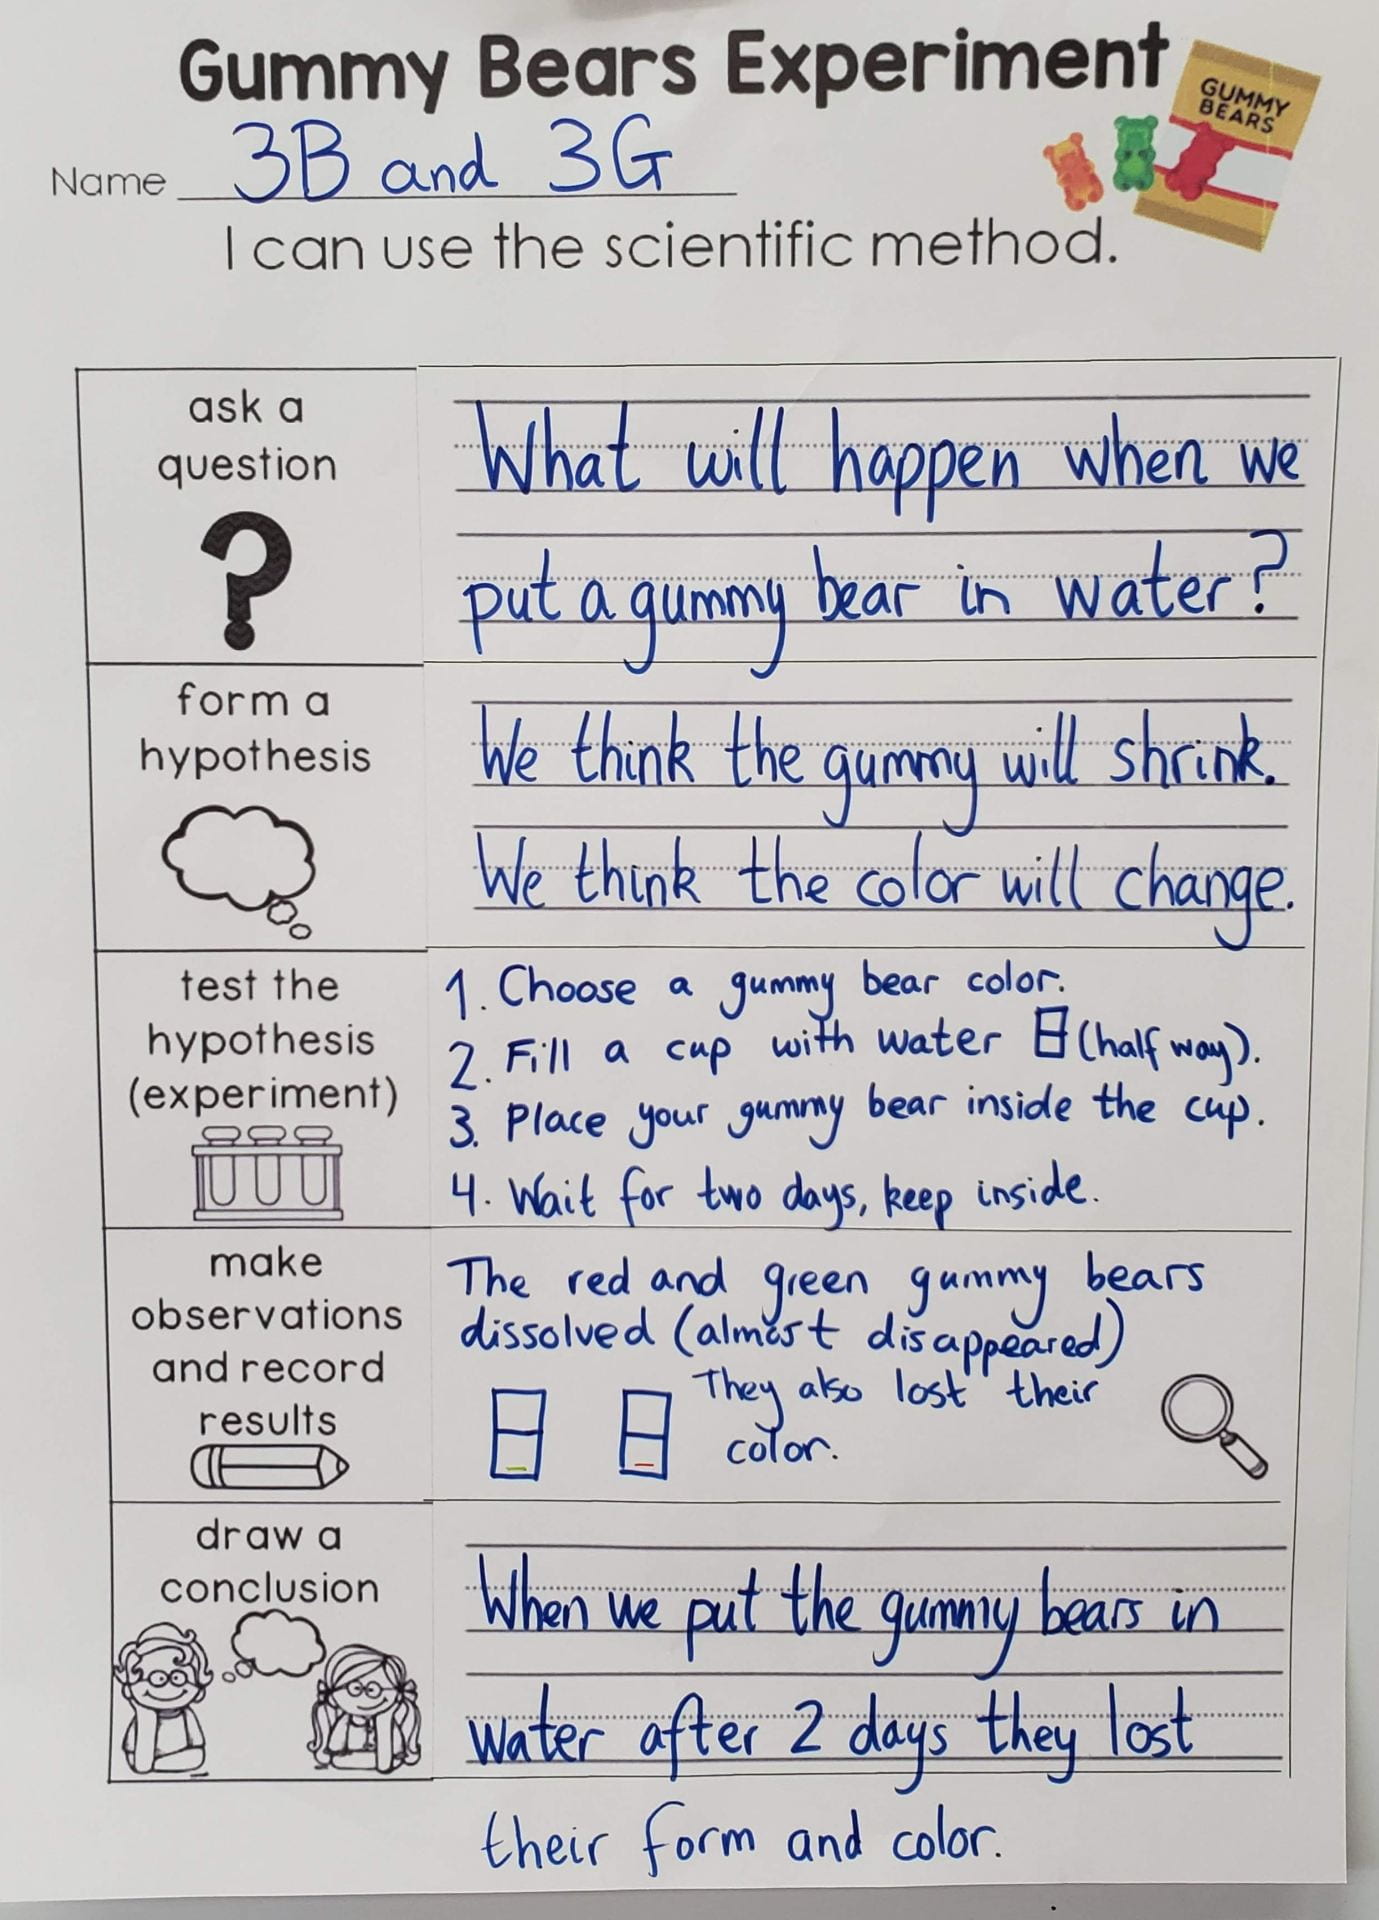 Gummy Bears Experiment
GUMMY
BEARS
Name 3B and 3G
I can use the scientific method.
ask a
question
What will happen when we
put a gummy bear in water?
form a
hypothesis
We think the gummy will shrink.
We think the color will change.
test the
hypothesis
(experiment)
1. Choose a gummy bear color.
2. Fill a cup with water (half way).
3. Place your gummy bear inside the cup.
4. Wait for two days, keep inside.
make
observations
and record
results
The red and green gummy bears
dissolved (almost disappeared)
They also lost their
color.
draw a
conclusion
When we put the gummy bears in
water after 2 days they lost
their form and color.